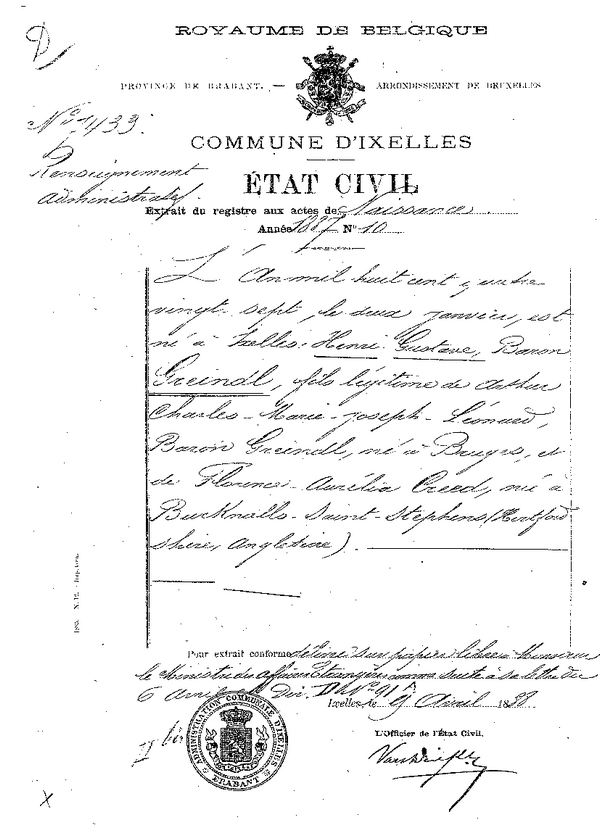 ROYAUME DE BELGIQUE
PROVINCE DE BRABANT. — ARRONDISSEMENT DE BRUXELLES
N° 1433.
COMMUNE D'IXELLES
Renseignement
administratif.
ÉTAT CIVIL
Extrait du registre aux actes de Naissance
Année 1887 N° 10
L'An mil huit cent quatre
vingt-sept, le deux janvier, est
né à Ixelles, Henri Gustave, Baron
Greindl, fils légitime de Arthur
Charles-Marie-Joseph-Léonard,
Baron Greindl, né à Bruges, et
de Florence-Aurélia Creed, née à
Burknalls-Saint-Stephens (Hertford
shire, Angleterre).
Pour extrait conforme délivré sur papier libre à Monsieur
le Ministre des Affaires Etrangères comme suite à sa lettre du
6 Dir. N° 91
Ixelles, le 9 Avril 1888
ADMINISTRATION COMMUNALE D'IXELLES
BRABANT
L'Officier de l'État Civil,
X